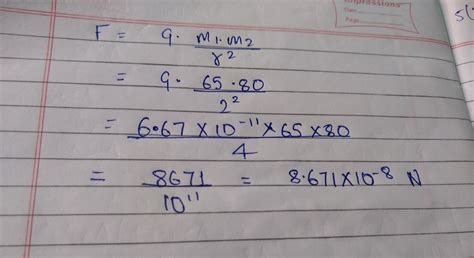 Impressions
Date
Page
5(
F = G. m1.m2 / r²
= G. 65.80 / 2²
= 6.67 × 10⁻¹¹ × 65 × 80 / 4
= 8671 / 10¹¹ = 8.671 × 10⁻⁸ N